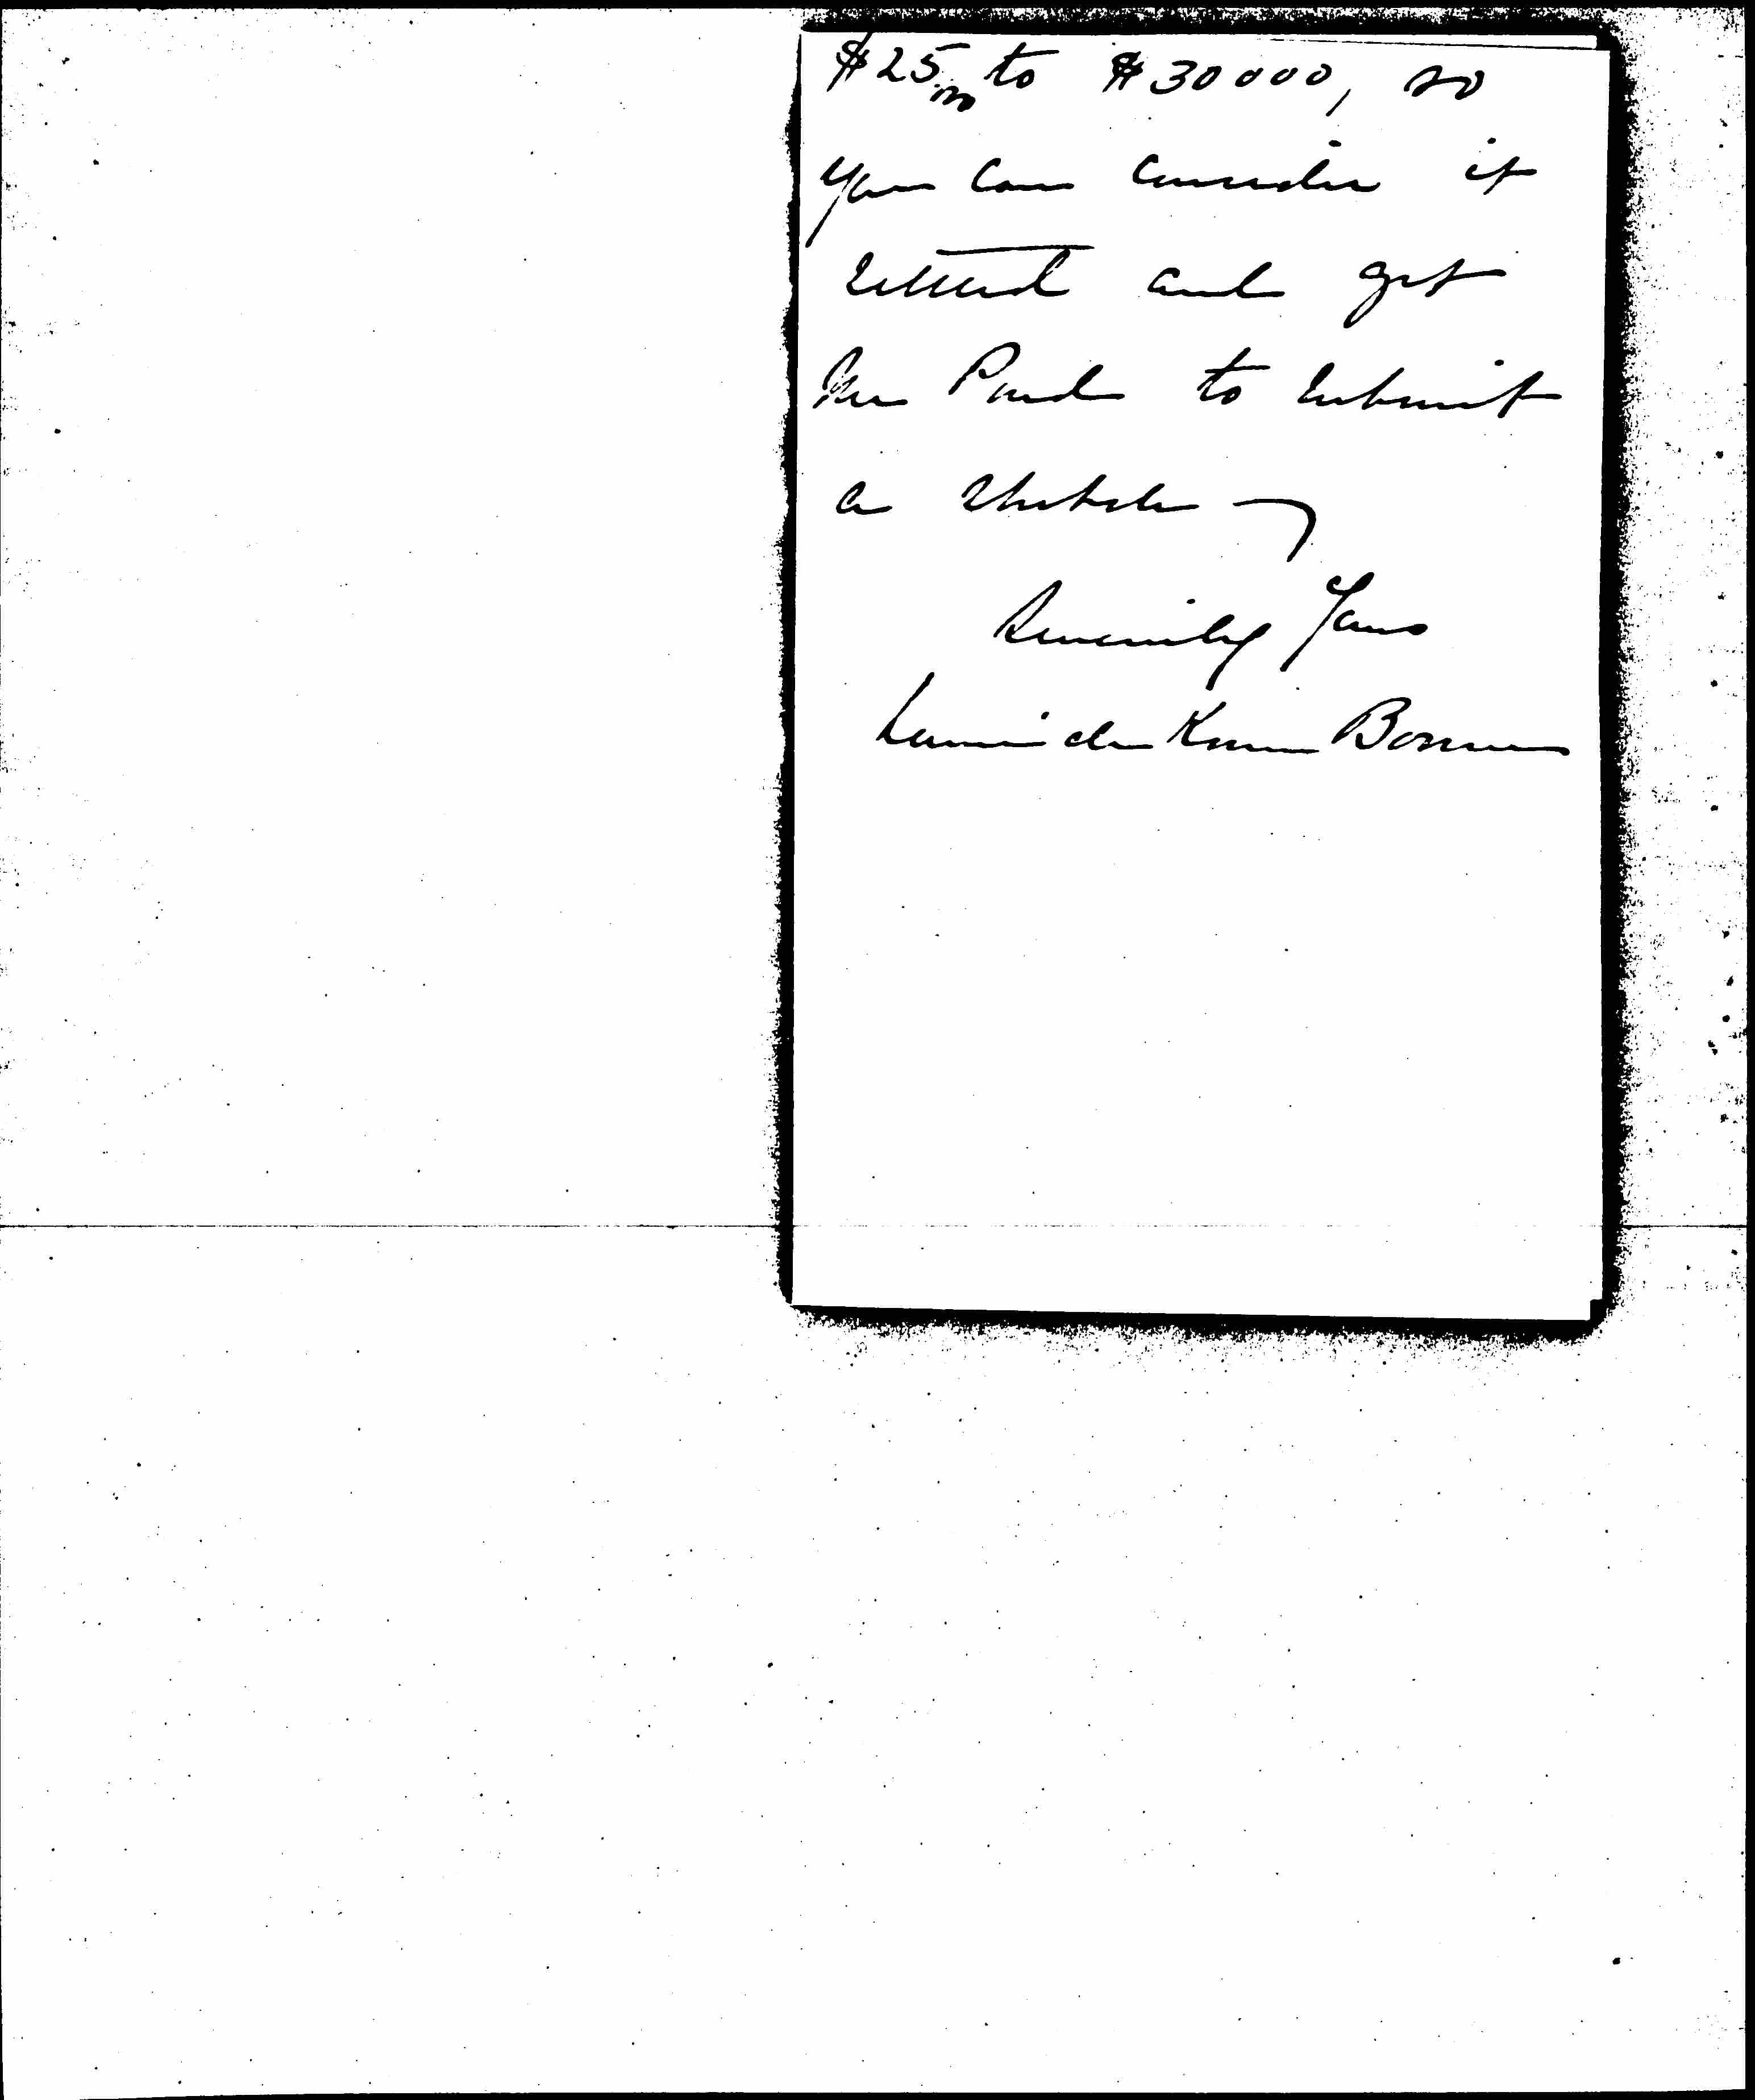 $25 m to $30000, so
you can consider it
settled and get
Mr Pond to submit
a sketch —
Sincerely Yours
Bonner